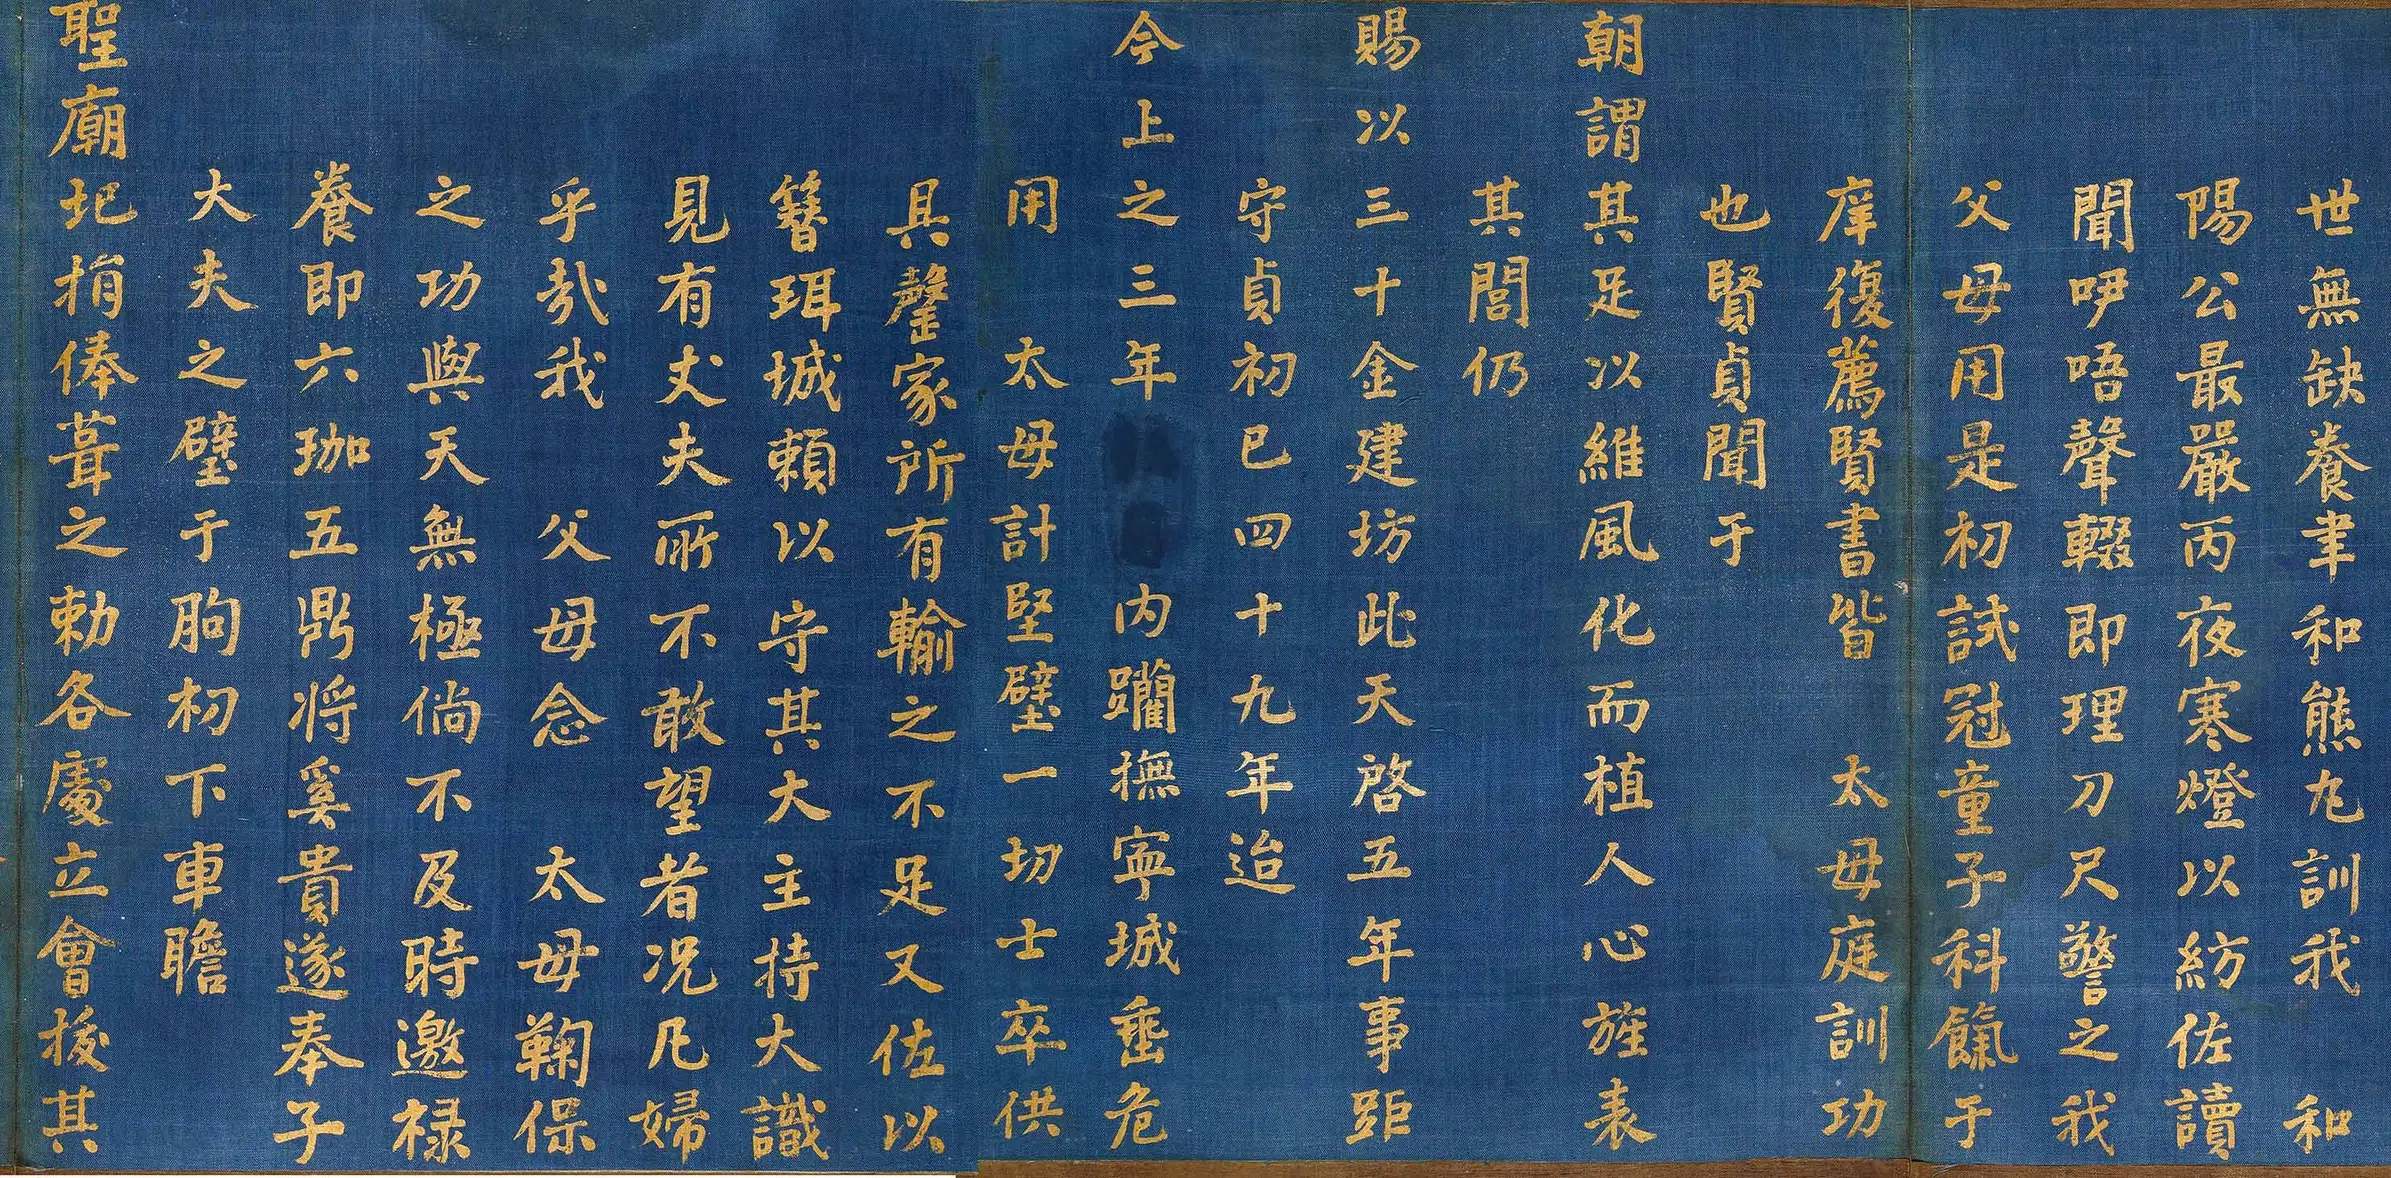 世無缺養聿和熊九訓我 和
陽公最嚴丙夜寒燈以紡佐讀
聞咿唔聲輟即理刀尺警之我
父母用是初試冠童子科餼于
庠復薦賢書皆 太母庭訓功
也賢貞聞于
朝謂其足以維風化而植人心旌表
其閭仍
賜以三十金建坊此天啓五年事距
守貞初已四十九年迨
今上之三年 内躪撫寧城垂危
用 太母計堅壁一切士卒供
具罄家所有輸之不足又佐以
簪珥城賴以守其大主持大識
見有丈夫所不敢望者况凡婦
乎哉我 父母念 太母鞠保
之功與天無極倘不及時邀祿
養即六珈五鼎將奚貴遂奉子
大夫之璧于朐初下車瞻
聖廟圮捐俸葺之勅各處立會後其